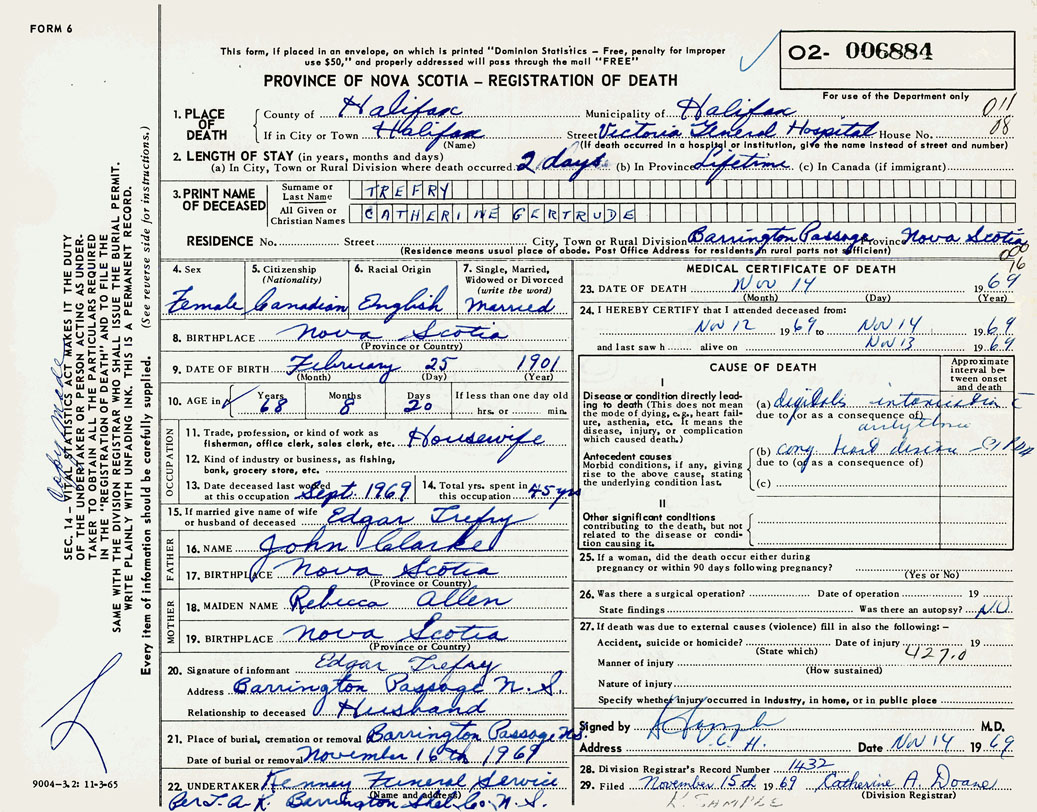 FORM 6
This form, if placed in an envelope, on which is printed "Dominion Statistics – Free, penalty for improper
use $50," and properly addressed will pass through the mail "FREE"
O2- 006884
PROVINCE OF NOVA SCOTIA – REGISTRATION OF DEATH
For use of the Department only
011
08
1. PLACE OF DEATH
County of Halifax Municipality of Halifax
If in City or Town Halifax Street Victoria General Hospital House No.
(Name) (If death occurred in a hospital or institution, give the name instead of street and number)
2. LENGTH OF STAY (in years, months and days)
(a) In City, Town or Rural Division where death occurred 2 days (b) In Province Lifetime (c) In Canada (if immigrant)
3. PRINT NAME OF DECEASED
Surname or Last Name TREFRY
All Given or Christian Names CATHERINE GERTRUDE
RESIDENCE No. Street City, Town or Rural Division Barrington Passage Province Nova Scotia
(Residence means usual place of abode. Post Office Address for residents in rural parts not sufficient)
16
4. Sex Female
5. Citizenship (Nationality) Canadian
6. Racial Origin English
7. Single, Married, Widowed or Divorced (write the word) Married
8. BIRTHPLACE Nova Scotia
(Province or Country)
9. DATE OF BIRTH February 25 1901
(Month) (Day) (Year)
10. AGE in Years 68 Months 8 Days 20 If less than one day old hrs. or min.
OCCUPATION
11. Trade, profession, or kind of work as fisherman, office clerk, sales clerk, etc. Housewife
12. Kind of industry or business, as fishing, bank, grocery store, etc.
13. Date deceased last worked at this occupation Sept. 1969
14. Total yrs. spent in this occupation 45 yrs
15. If married give name of wife or husband of deceased Edgar Trefry
FATHER
16. NAME John Clarke
17. BIRTHPLACE Nova Scotia
(Province or Country)
MOTHER
18. MAIDEN NAME Rebecca Allen
19. BIRTHPLACE Nova Scotia
(Province or Country)
20. Signature of informant Edgar Trefry
Address Barrington Passage N.S.
Relationship to deceased Husband
21. Place of burial, cremation or removal Barrington Passage N.S.
Date of burial or removal November 16th 1969
22. UNDERTAKER Kenney Funeral Service
(Name and address)
Per J.A.K. Barrington Shel. Co. N.S.
MEDICAL CERTIFICATE OF DEATH
23. DATE OF DEATH Nov 14 1969
(Month) (Day) (Year)
24. I HEREBY CERTIFY that I attended deceased from:
Nov 12 1969 to Nov 14 1969
and last saw h alive on Nov 13 1969
CAUSE OF DEATH
Approximate interval between onset and death
I
Disease or condition directly leading to death (This does not mean the mode of dying, e.g., heart failure, asthenia, etc. It means the disease, injury, or complication which caused death.)
(a) digitalis intoxication c
due to (or as a consequence of)
arrhythmia
Antecedent causes
Morbid conditions, if any, giving rise to the above cause, stating the underlying condition last.
(b) cong heart disease
due to (or as a consequence of)
(c)
II
Other significant conditions contributing to the death, but not related to the disease or condition causing it.
25. If a woman, did the death occur either during pregnancy or within 90 days following pregnancy?
(Yes or No)
26. Was there a surgical operation? Date of operation 19
State findings Was there an autopsy? NO
27. If death was due to external causes (violence) fill in also the following: –
Accident, suicide or homicide? Date of injury 19
(State which) 427.0
Manner of injury
(How sustained)
Nature of injury
Specify whether injury occurred in industry, in home, or in public place
Signed by M.D.
Address V.G.H. Date Nov 14 1969
28. Division Registrar's Record Number 1432
29. Filed November 15th 1969 Catherine A. Doane
(Division Registrar)
K. SAMPLE
SEC. 14 – VITAL STATISTICS ACT MAKES IT THE DUTY
OF THE UNDERTAKER OR PERSON ACTING AS UNDER-
TAKER TO OBTAIN ALL THE PARTICULARS REQUIRED
IN THE "REGISTRATION OF DEATH" AND TO FILE THE
SAME WITH THE DIVISION REGISTRAR WHO SHALL ISSUE THE BURIAL PERMIT.
WRITE PLAINLY WITH UNFADING INK. THIS IS A PERMANENT RECORD.
Every item of information should be carefully supplied. (See reverse side for instructions.)
Copy made
9004–3.2: 11-3-65